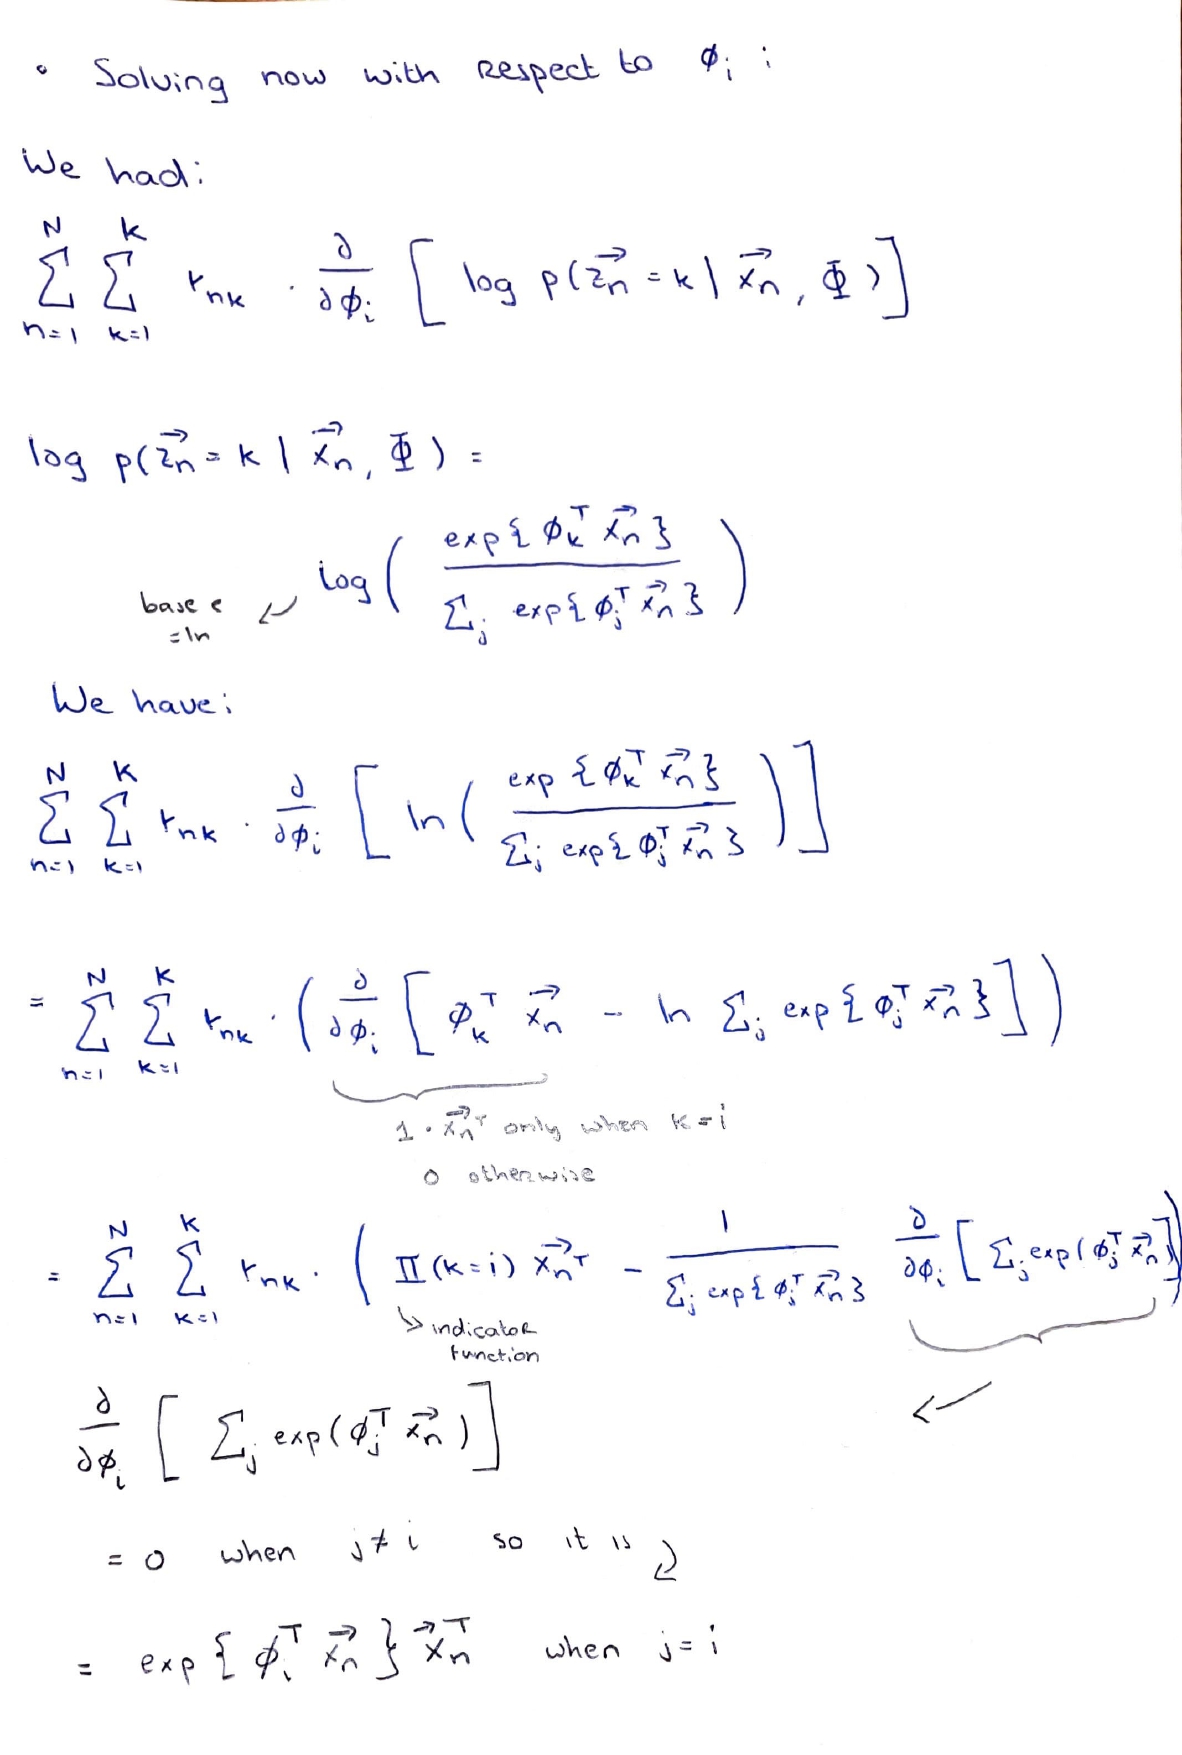 • Solving now with respect to ϕᵢ :
We had:
∑_{n=1}^{N} ∑_{k=1}^{K} r_{nk} · ∂/∂ϕᵢ [ log p(z⃗ₙ = k | x⃗ₙ, Φ) ]
log p(z⃗ₙ = k | x⃗ₙ, Φ) =
log( exp{ϕₖᵀ x⃗ₙ} / ∑ⱼ exp{ϕⱼᵀ x⃗ₙ} )
base e
= ln
We have:
∑_{n=1}^{N} ∑_{k=1}^{K} r_{nk} · ∂/∂ϕᵢ [ ln( exp{ϕₖᵀ x⃗ₙ} / ∑ⱼ exp{ϕⱼᵀ x⃗ₙ} ) ]
= ∑_{n=1}^{N} ∑_{k=1}^{K} r_{nk} · ( ∂/∂ϕᵢ [ ϕₖᵀ x⃗ₙ - ln ∑ⱼ exp{ϕⱼᵀ x⃗ₙ} ] )
1 · x⃗ₙᵀ only when k = i
0 otherwise
= ∑_{n=1}^{N} ∑_{k=1}^{K} r_{nk} · ( 𝕀(k=i) x⃗ₙᵀ - 1 / ∑ⱼ exp{ϕⱼᵀ x⃗ₙ} ∂/∂ϕᵢ [ ∑ⱼ exp(ϕⱼᵀ x⃗ₙ) ] )
↳ indicator
function
∂/∂ϕᵢ [ ∑ⱼ exp(ϕⱼᵀ x⃗ₙ) ]
= 0 when j ≠ i so it is
= exp{ϕᵢᵀ x⃗ₙ} x⃗ₙᵀ when j = i